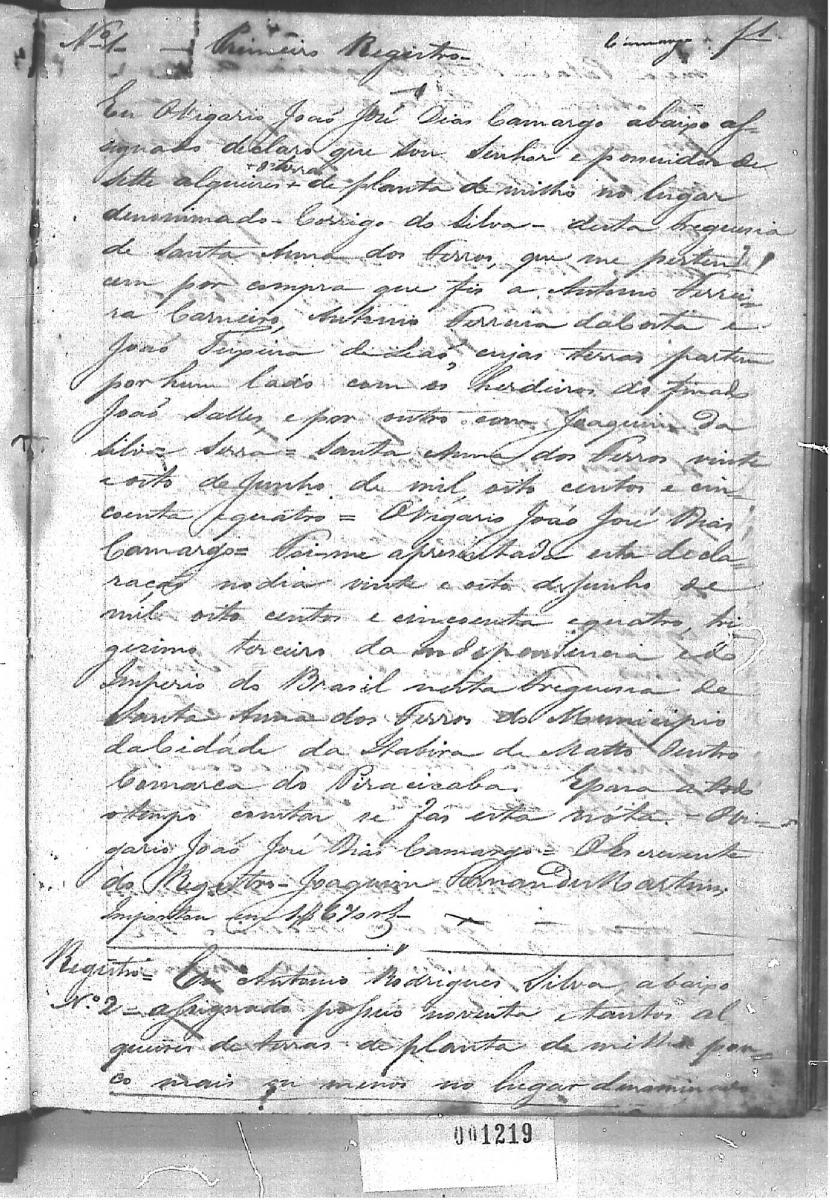 Nº 1 - Primeiro Registro - Camargo fl 1
Eu OVigario João José Dias Camargo abaixo as-
signado declaro que sou Senhor e possuidor de
sette alqueires + de terras + de planta de milho no lugar
denominado - Corrigo do Silva - desta Freguesia
de Santa Anna dos Ferros, que me perten-
cem por compra que fis a Antonio Ferrei-
ra Carneiro, Antonio Ferreira daCosta e
João Teixeira de Leão, cujas terras partem
por hum lado com os herdeiros do finado
João Salles, e por outro com Joaquim da
Silva Serra = Santa Anna dos Ferros vinte
e oito de Junho de mil, oito centos e cin-
coenta equatro = OVigario João José Dias
Camargo = Foi-me apresentada esta decla-
ração nodia vinte e oito deJunho de
mil oito centos e cincoenta equatro, tri
gesimo terceiro da independencia e do
Imperio do Brasil nesta Freguesia de
Santa Anna dos Ferros do Municipio
daCidade da Itabira de Matto Dentro
Comarca do Piracicaba. Epara a todo
otempo constar se fás esta nóta. - OVi-
gario João José Dias Camargo = OEscrevente
do Registro - Joaquim Fernandes Martins,
Importou em
Registro = Eu Antonio Rodrigues Silva, abaixo
N.º 2 - assignado possuo noventa etantos al
queires de terras de planta de milho pou-
co mais ou menos no lugar denominado
001219